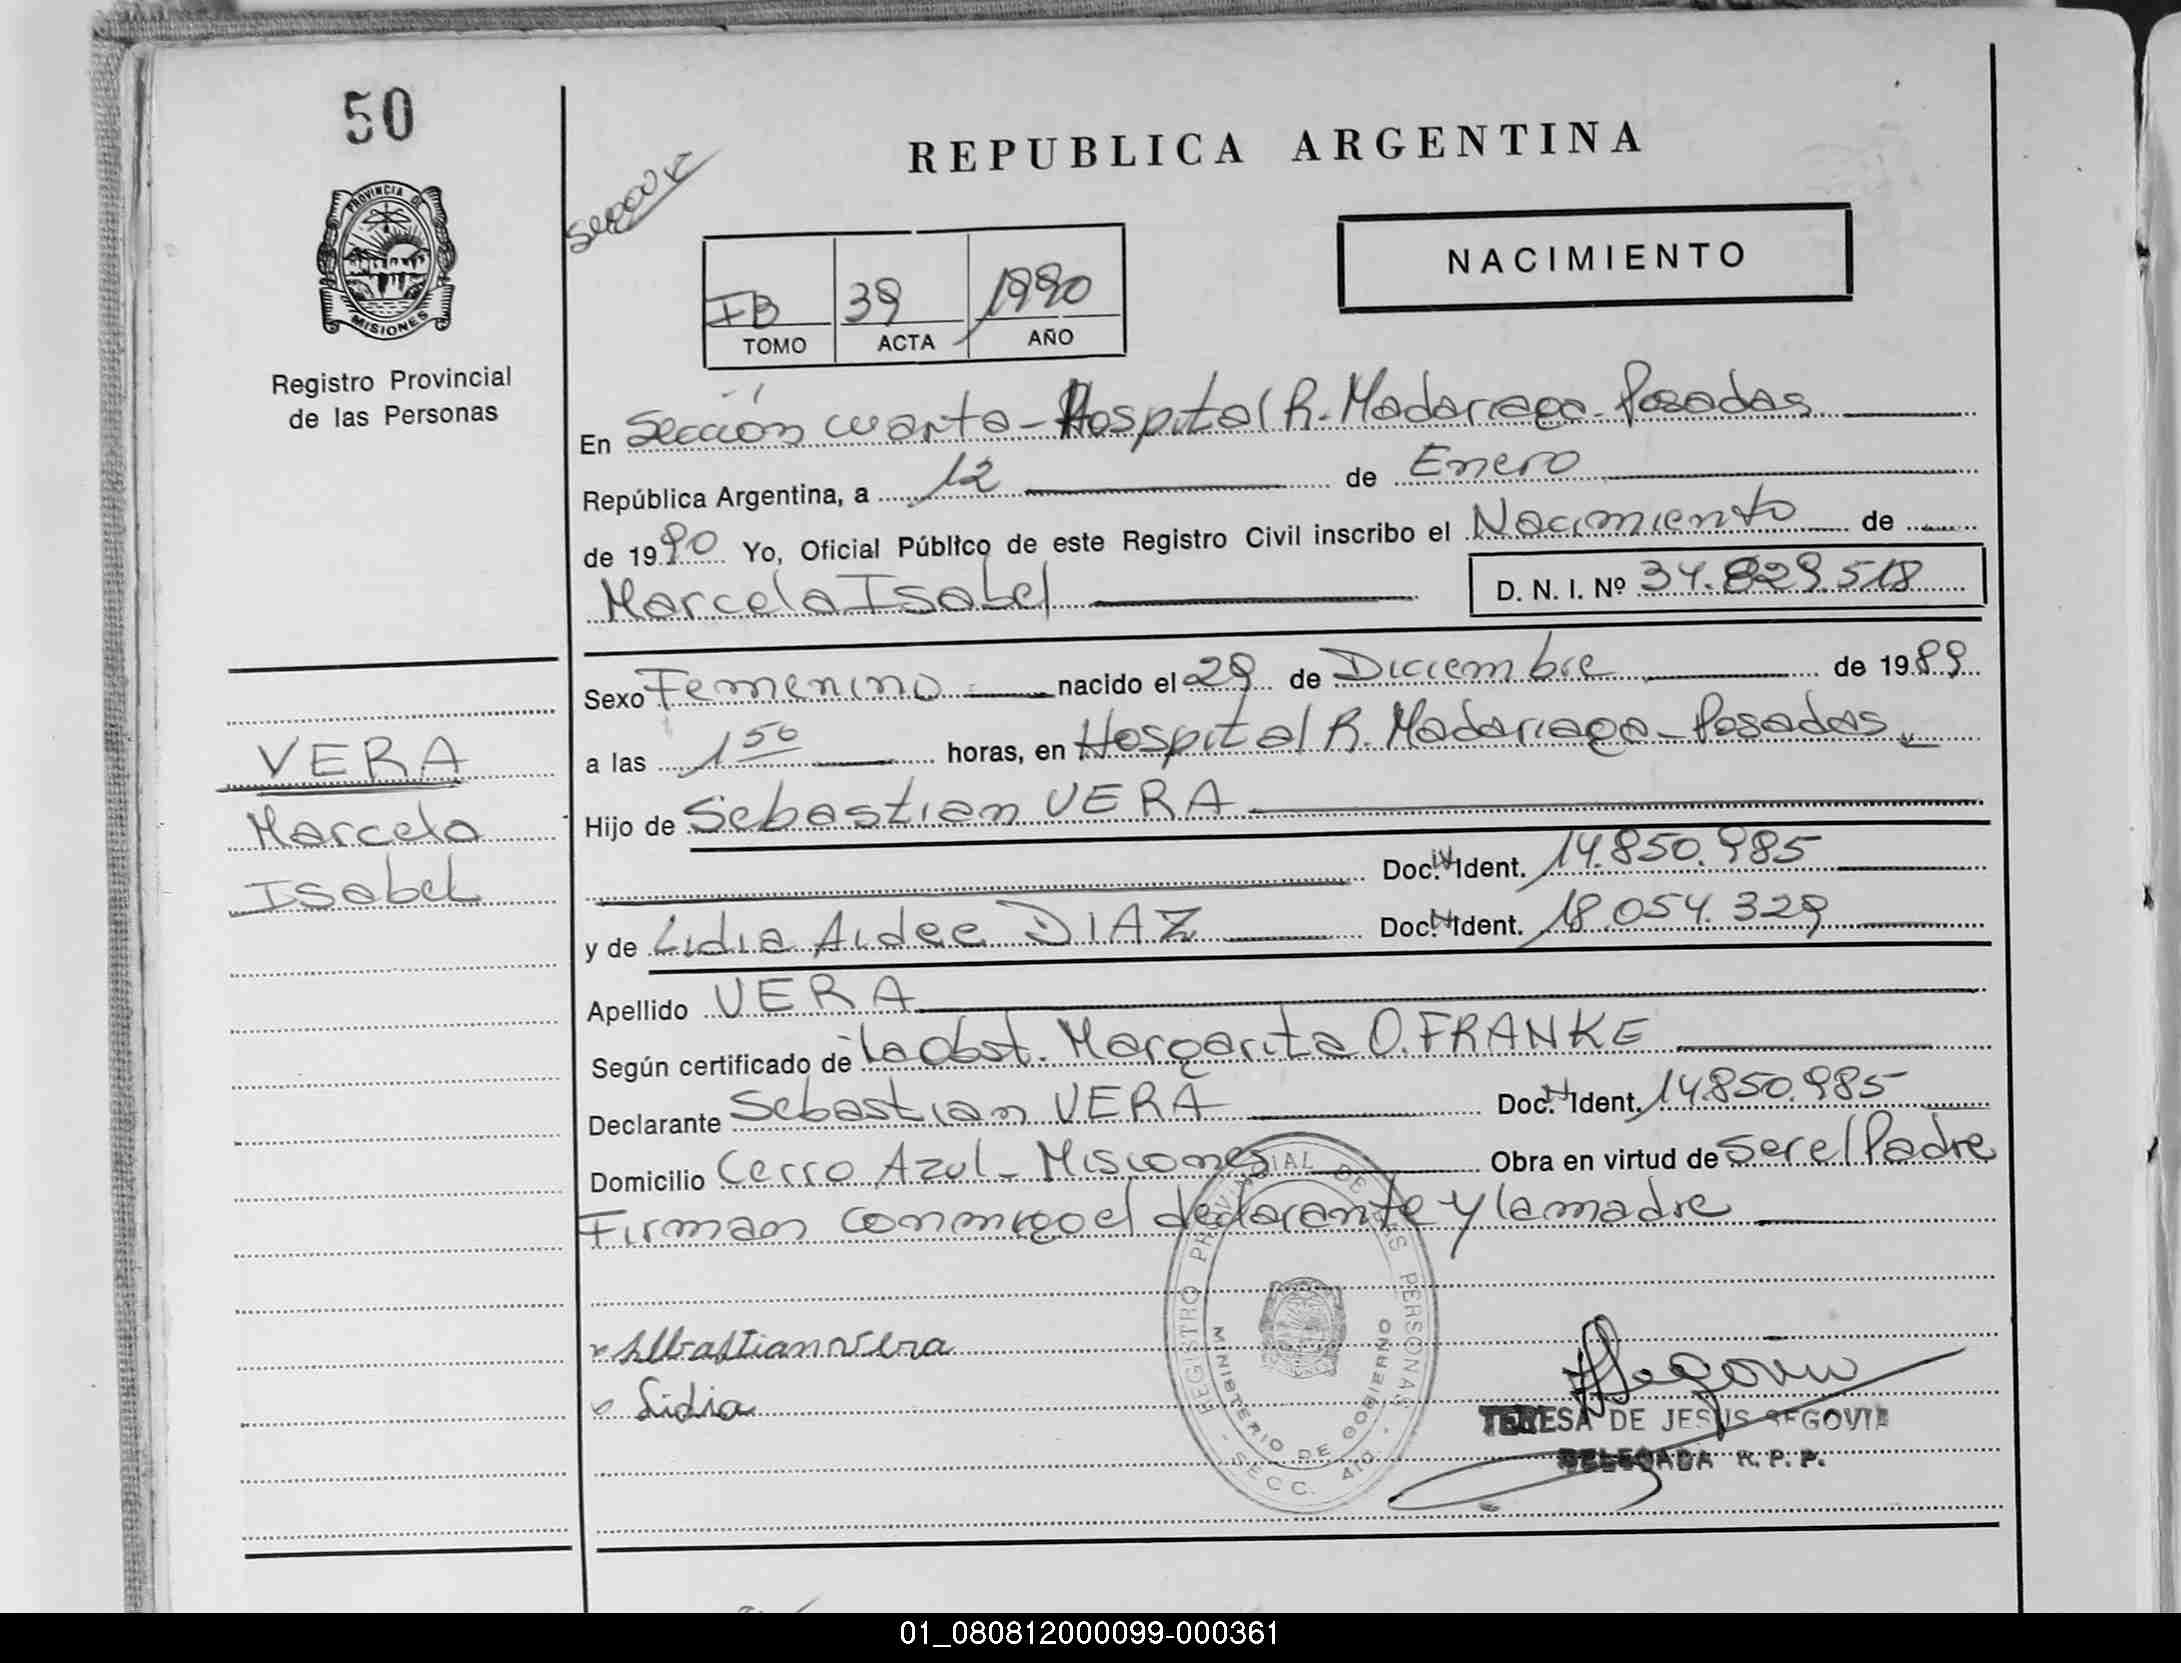 50
PROVINCIA DE
MISIONES
Registro Provincial
de las Personas
REPUBLICA ARGENTINA
NACIMIENTO
IB 39 1990
TOMO ACTA AÑO
En Sección cuarta - Hospital R. Madariaga - Posadas
República Argentina, a 12 de Enero
de 1990 Yo, Oficial Público de este Registro Civil inscribo el Nacimiento de
Marcela Isabel D. N. I. Nº 34.829.518
Sexo Femenino nacido el 29 de Diciembre de 1989
a las 1 50 horas, en Hospital R. Madariaga - Posadas
Hijo de Sebastian VERA
Doc. N Ident. 14.850.985
y de Lidia Aidee DIAZ Doc. N Ident. 18.054.329
Apellido VERA
Según certificado de la Obst. Margarita O. FRANKE
Declarante Sebastian VERA Doc. N Ident. 14.850.985
Domicilio Cerro Azul - Misiones Obra en virtud de ser el Padre
Firman conmigo el declarante y la madre
Sebastian Vera
Lidia
VERA
Marcela
Isabel
REGISTRO PROVINCIAL DE LAS PERSONAS
MINISTERIO DE GOBIERNO
- SECC. 4TO. -
Segovia
TERESA DE JESUS SEGOVIA
DELEGADA R. P. P.
01_080812000099-000361